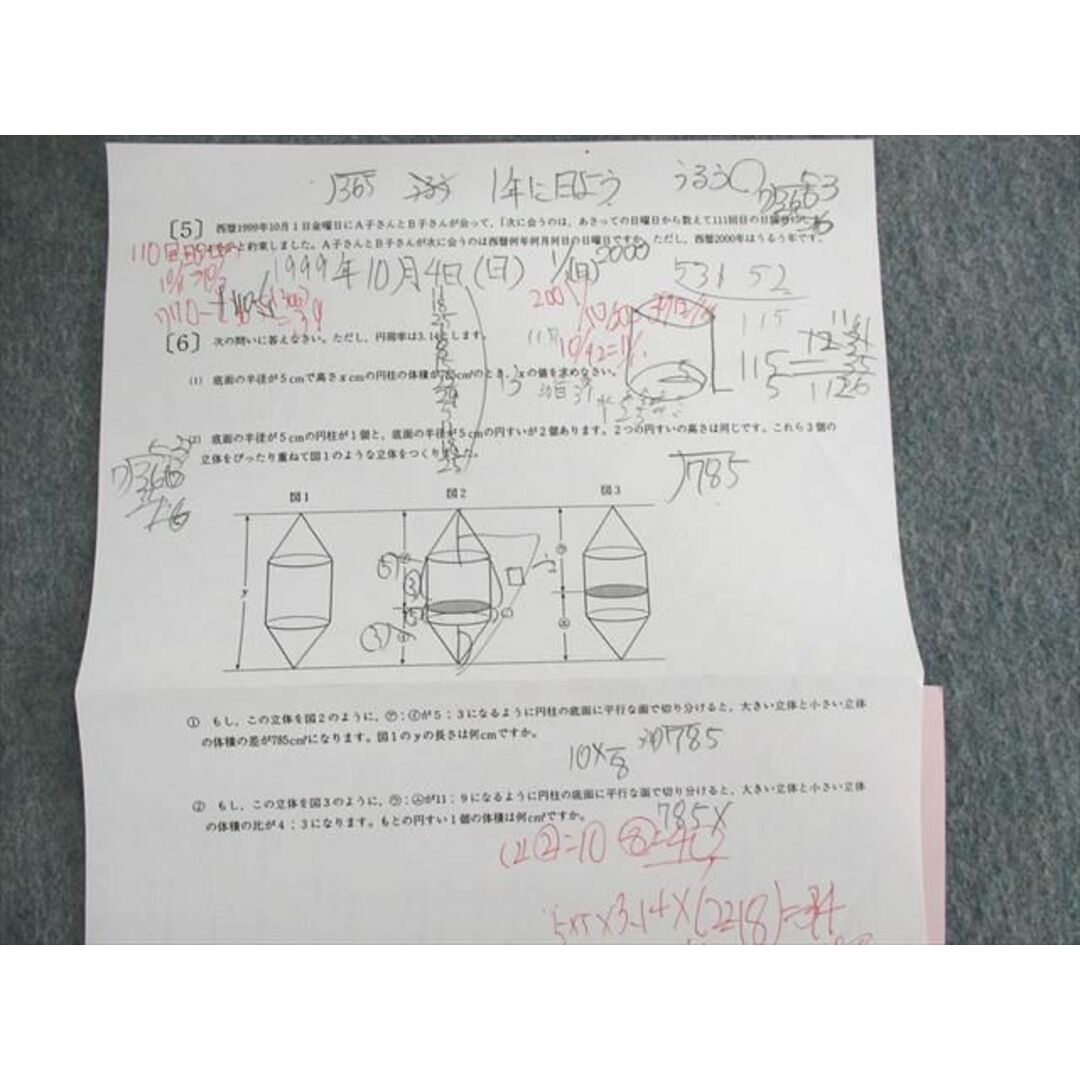 365 1年に日よう うるう○ 7)366 53
[5] 西暦1999年10月1日金曜日にA子さんとB子さんが会って,「次に会うのは, あさっての日曜日から数えて111回目の日曜日
と約束しました。A子さんとB子さんが次に会うのは西暦何年何月何日の日曜日ですか。ただし, 西暦2000年はうるう年です。
1999年10月4日(日) 2000
531 52
[6] 次の問いに答えなさい。ただし, 円周率は3.14とします。
115
(1) 底面の半径が5cmで高さxcmの円柱の体積が785cm³のとき, xの値を求めなさい。
115
5 1126
(2) 底面の半径が5cmの円柱が1個と, 底面の半径が5cmの円すいが2個あります。2つの円すいの高さは同じです。これら3個の
立体をぴったり重ねて図1のような立体をつくりました。
7)366
785
図1 図2 図3
y
① もし, この立体を図2のように, ㋐:㋑が5:3になるように円柱の底面に平行な面で切り分けると, 大きい立体と小さい立体
の体積の差が785cm³になります。図1のyの長さは何cmですか。
785
② もし, この立体を図3のように, ㋒:㋓が11:9になるように円柱の底面に平行な面で切り分けると, 大きい立体と小さい立体
の体積の比が4:3になります。もとの円すい1個の体積は何cm³ですか。
785×
②=10 ⑧=40
5×5×3.14×